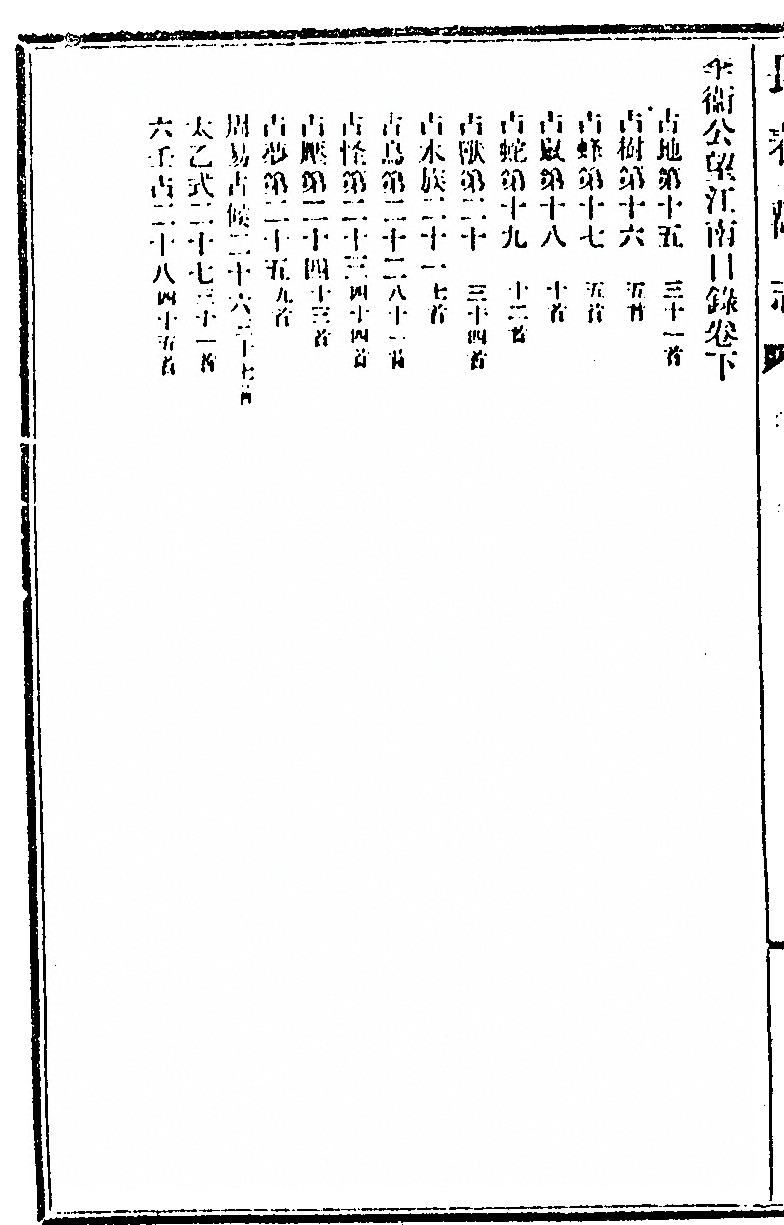 李衞公望江南目錄卷下
占地第十五 三十一首
占樹第十六 五首
占蜂第十七 五首
占鼠第十八 十首
占蛇第十九 十二首
占獸第二十 三十四首
占水族二十一 七首
占鳥第二十二 八十一首
占怪第二十三 四十四首
占厭第二十四 十三首
占夢第二十五 九首
周易占候二十六 三十七首
太乙式二十七 三十一首
六壬占二十八 四十五首